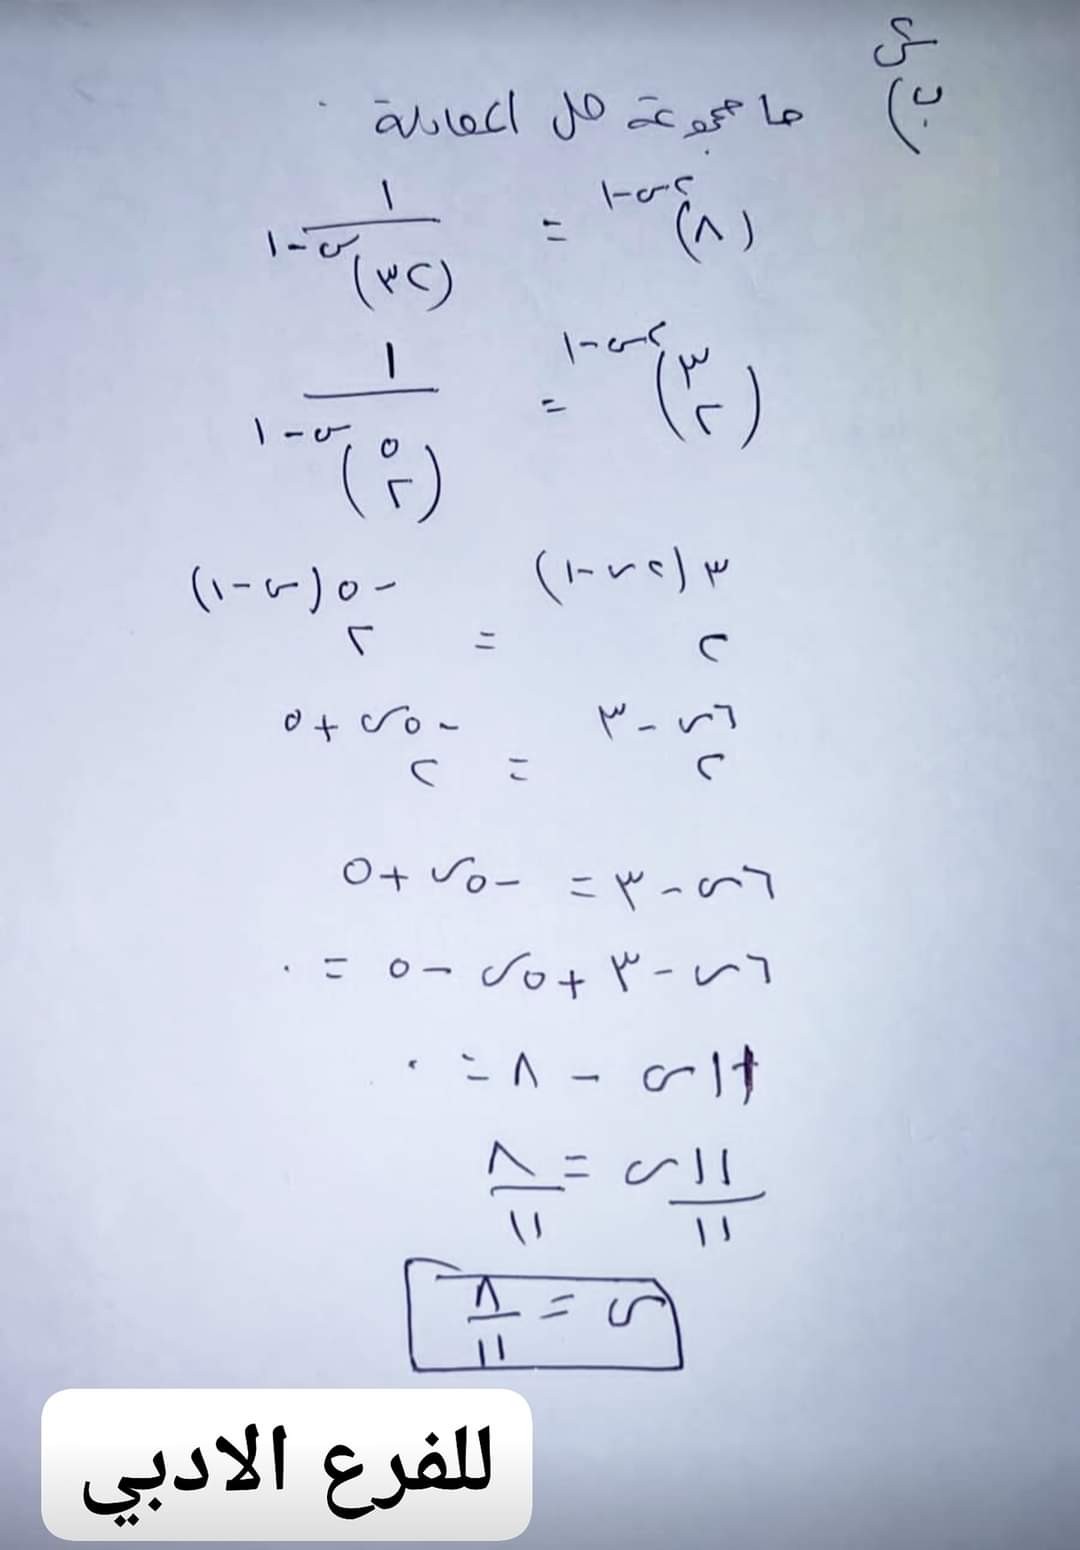 س
ب)
ما مجموعة حل المعادلة .
(٨)^(٢س-١) = ١/(٣٢)^(س-١)
(٢^٣)^(٢س-١) = ١/(٢^٥)^(س-١)
٢^(٣(٢س-١)) = ٢^(-٥(س-١))
٢^(٦س-٣) = ٢^(-٥س+٥)
٦س-٣ = -٥س+٥
٦س-٣+٥س-٥ = ٠
+١١س - ٨ = ٠
١١س/١١ = ٨/١١
س = ٨/١١
للفرع الادبي